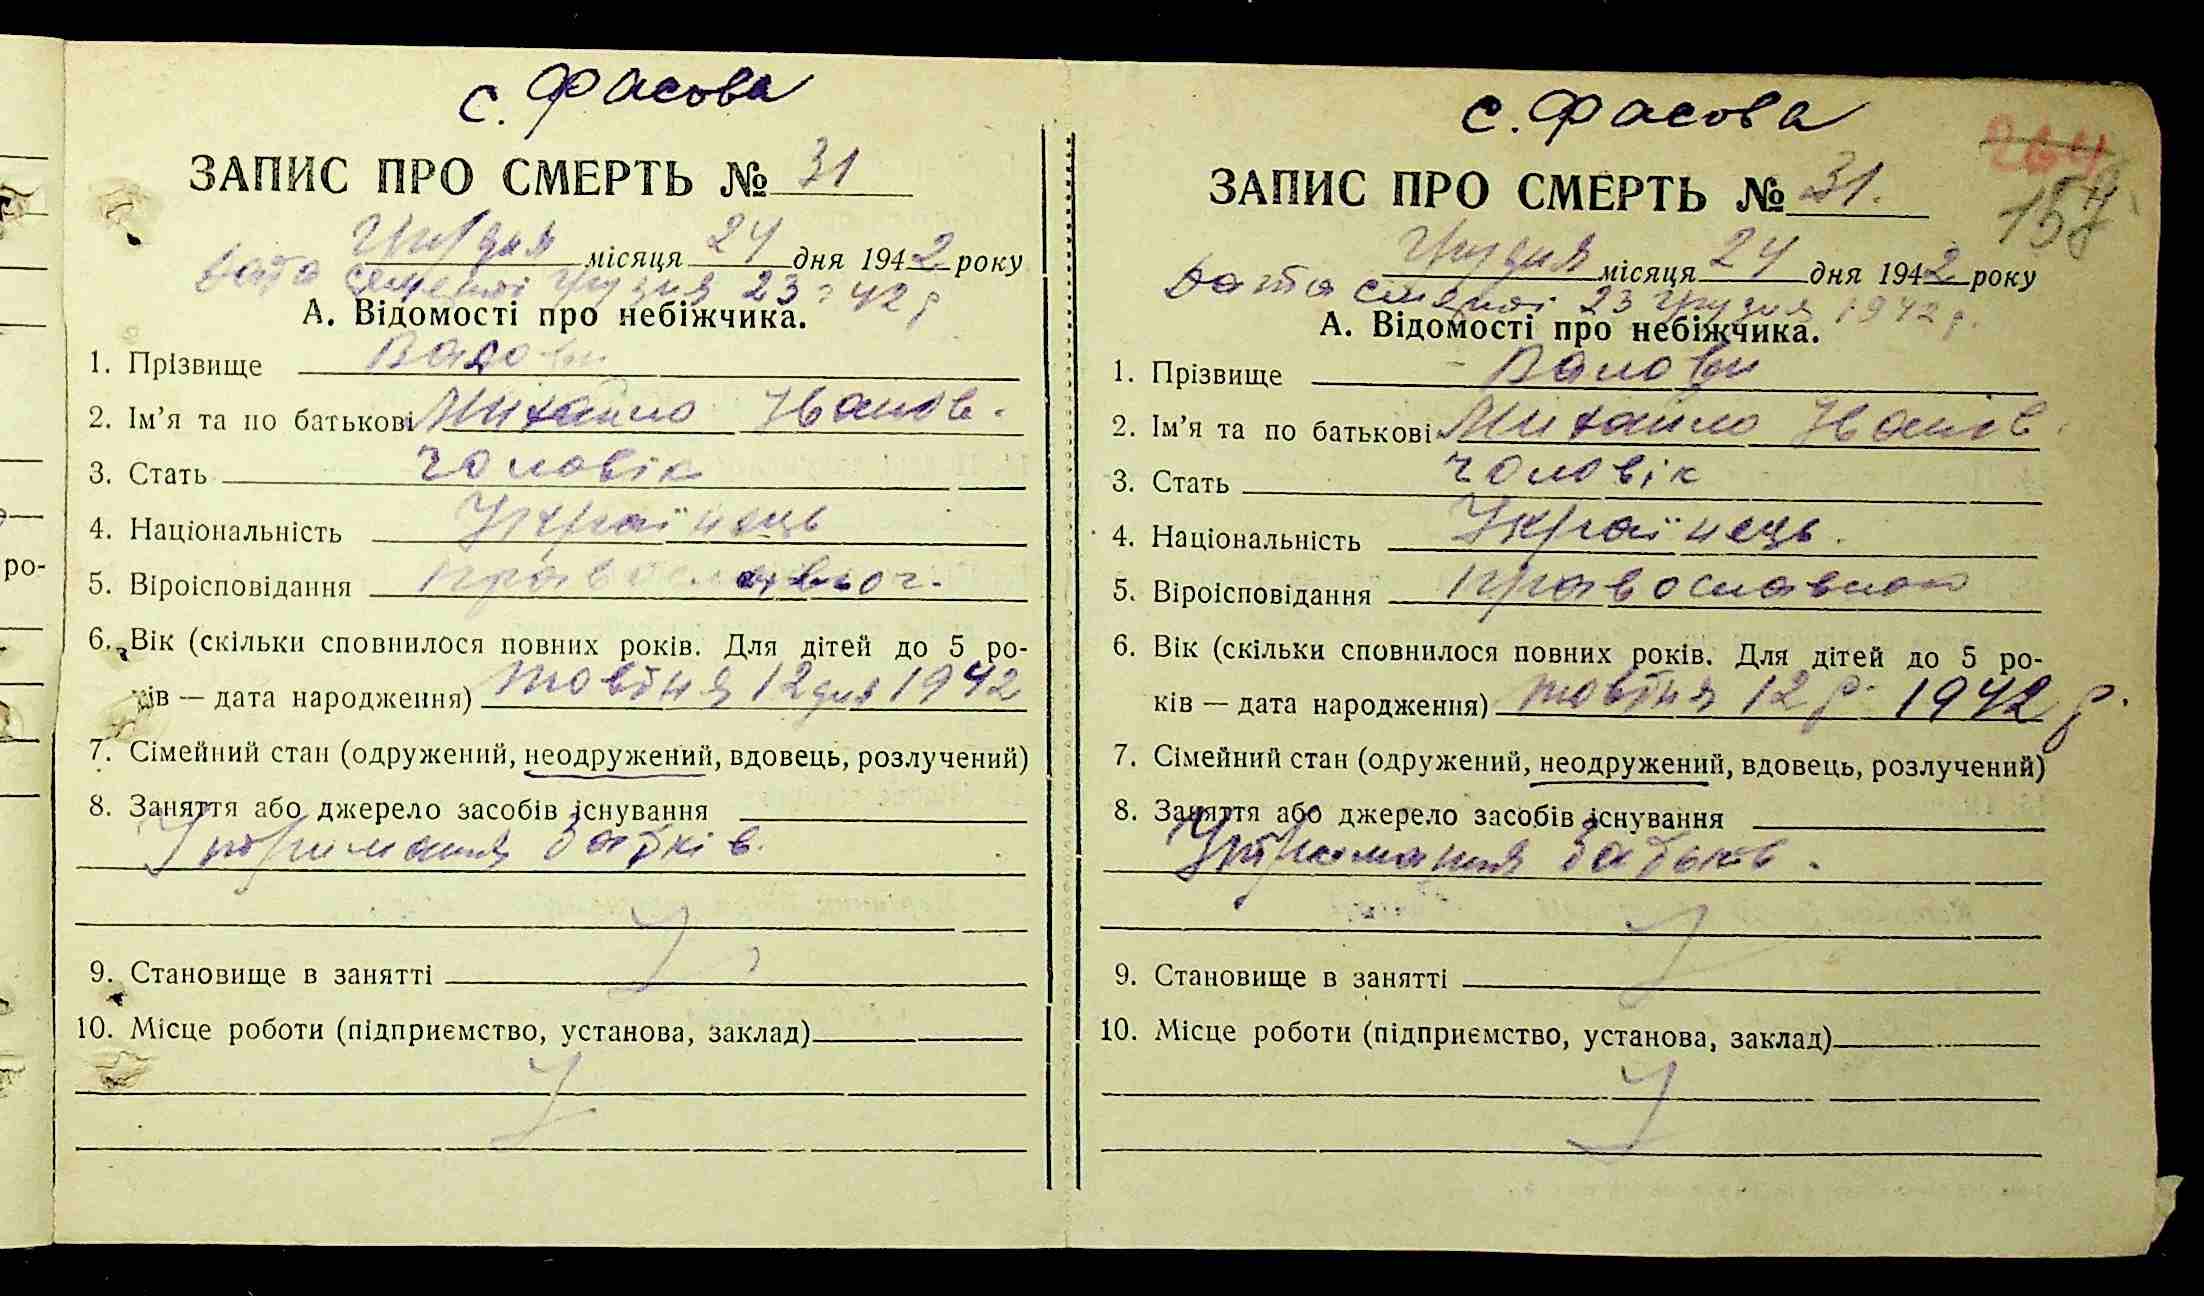 с. Фасова
ЗАПИС ПРО СМЕРТЬ № 31
Грудня місяця 24 дня 1942 року
Дата смерті Грудня 23 42 р
А. Відомості про небіжчика.
1. Прізвище
2. Ім'я та по батькові Михайло Іванов.
3. Стать чоловік
4. Національність Українець
5. Віроісповідання православног.
6. Вік (скільки сповнилося повних років. Для дітей до 5 ро-
ків — дата народження) жовтня 12 дня 1942
7. Сімейний стан (одружений, неодружений, вдовець, розлучений)
8. Заняття або джерело засобів існування
Утримання батків.
9. Становище в занятті
10. Місце роботи (підприємство, установа, заклад)
с. Фасова
264
ЗАПИС ПРО СМЕРТЬ № 31.
Грудня місяця 24 дня 1942 року
Дата смерті 23 Грудня 1942 р.
А. Відомості про небіжчика.
1. Прізвище
2. Ім'я та по батькові Михайло Іванов.
3. Стать чоловік
4. Національність Українець.
5. Віроісповідання православною
6. Вік (скільки сповнилося повних років. Для дітей до 5 ро-
ків — дата народження) жовтня 12 р. 1942 р.
7. Сімейний стан (одружений, неодружений, вдовець, розлучений)
8. Заняття або джерело засобів існування
Утримання батьків.
9. Становище в занятті
10. Місце роботи (підприємство, установа, заклад)
ро-